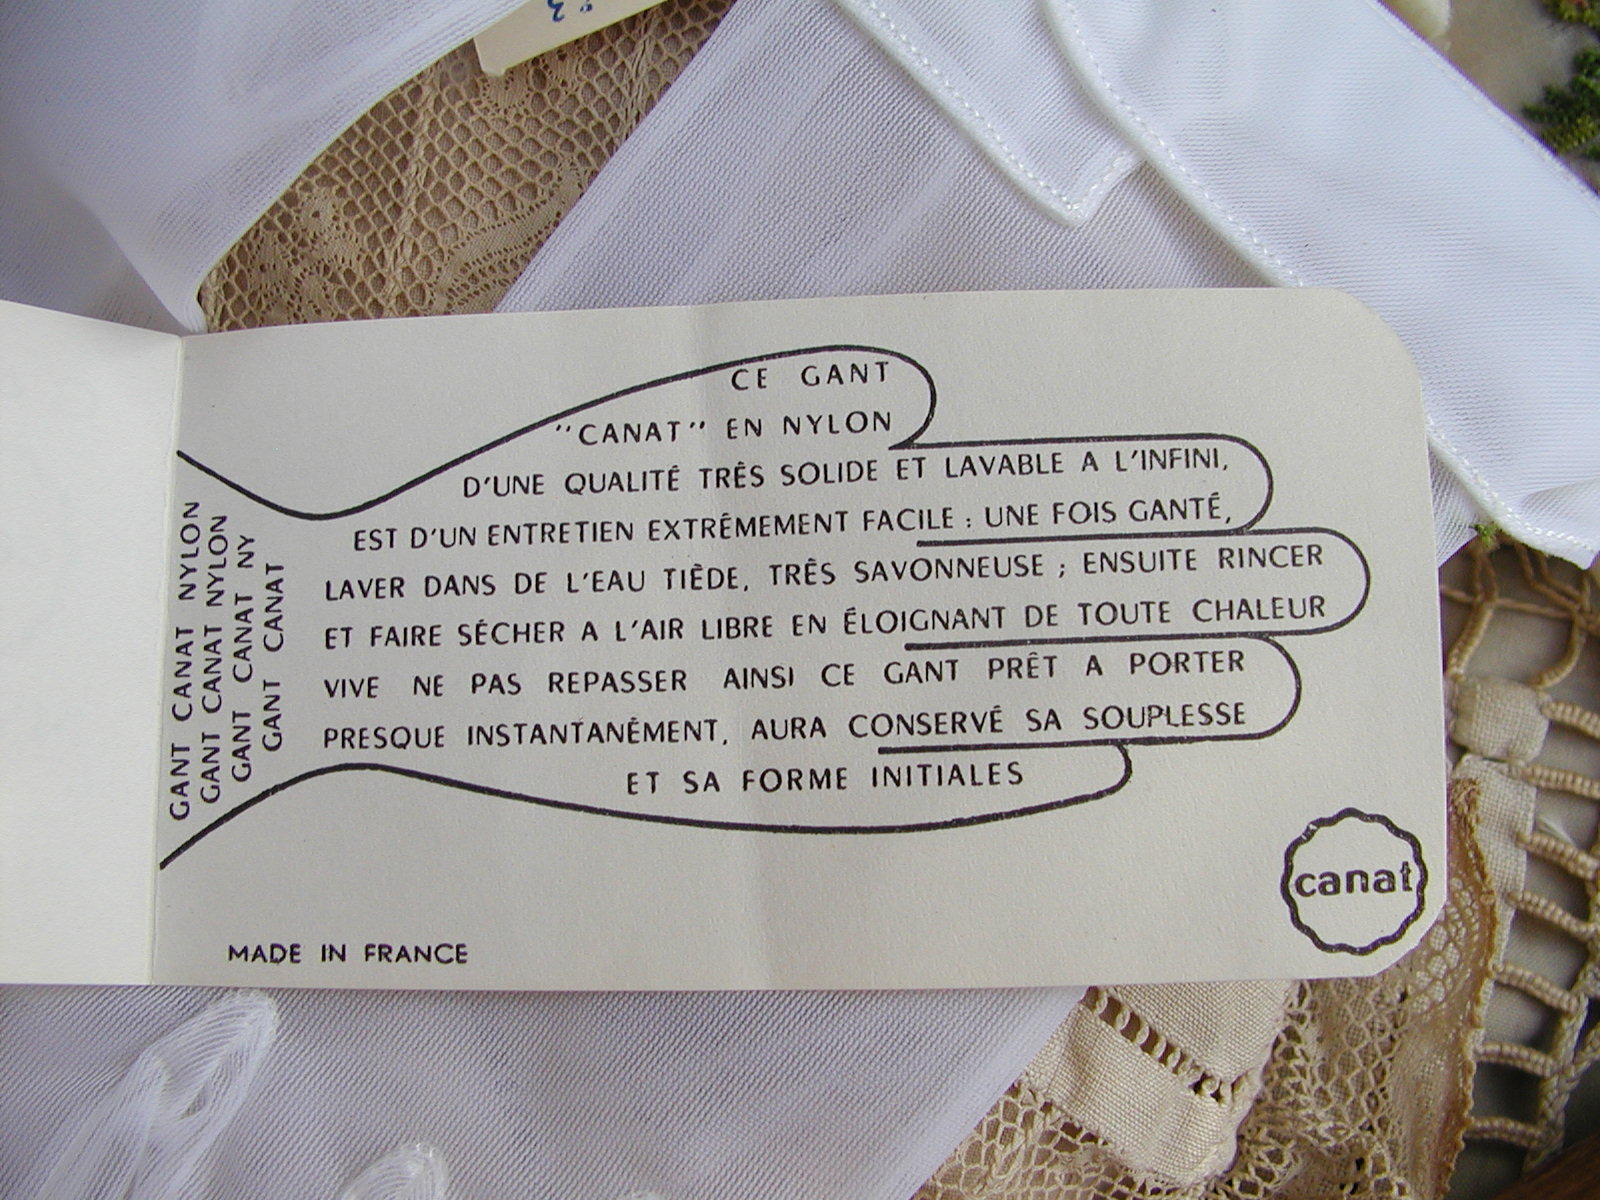 CE GANT
"CANAT" EN NYLON
D'UNE QUALITÉ TRÊS SOLIDE ET LAVABLE A L'INFINI,
EST D'UN ENTRETIEN EXTRÊMEMENT FACILE : UNE FOIS GANTÉ,
LAVER DANS DE L'EAU TIÈDE, TRÊS SAVONNEUSE ; ENSUITE RINCER
ET FAIRE SÉCHER A L'AIR LIBRE EN ÉLOIGNANT DE TOUTE CHALEUR
VIVE NE PAS REPASSER AINSI CE GANT PRÊT A PORTER
PRESQUE INSTANTANÉMENT, AURA CONSERVÉ SA SOUPLESSE
ET SA FORME INITIALES
GANT CANAT NYLON
GANT CANAT NYLON
GANT CANAT NY
GANT CANAT
canat
MADE IN FRANCE